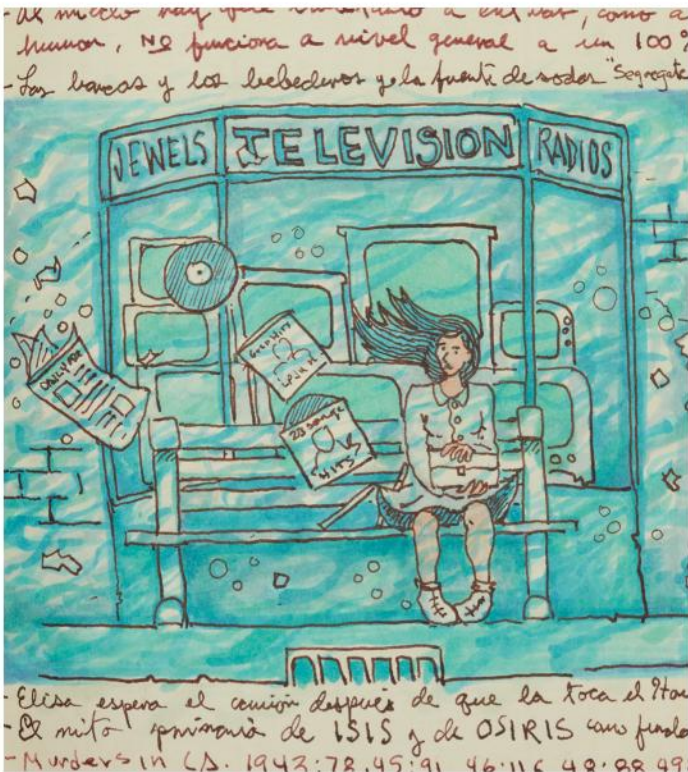 - Al miedo hay que a entrar, como a
humor, NO funciona a nivel general a un 100%
- Las bancas y los bebederos y la fuente de sodas "Segregate
JEWELS TELEVISION RADIOS
DAILY
GOLD HITS
23 SONGS
HITS
- Elisa espera el camión después de que la toca el
- El mito primario de ISIS y de OSIRIS como
- Murders in L.A. 1943: 72, 45: 91 46: 116 48: 88 49: